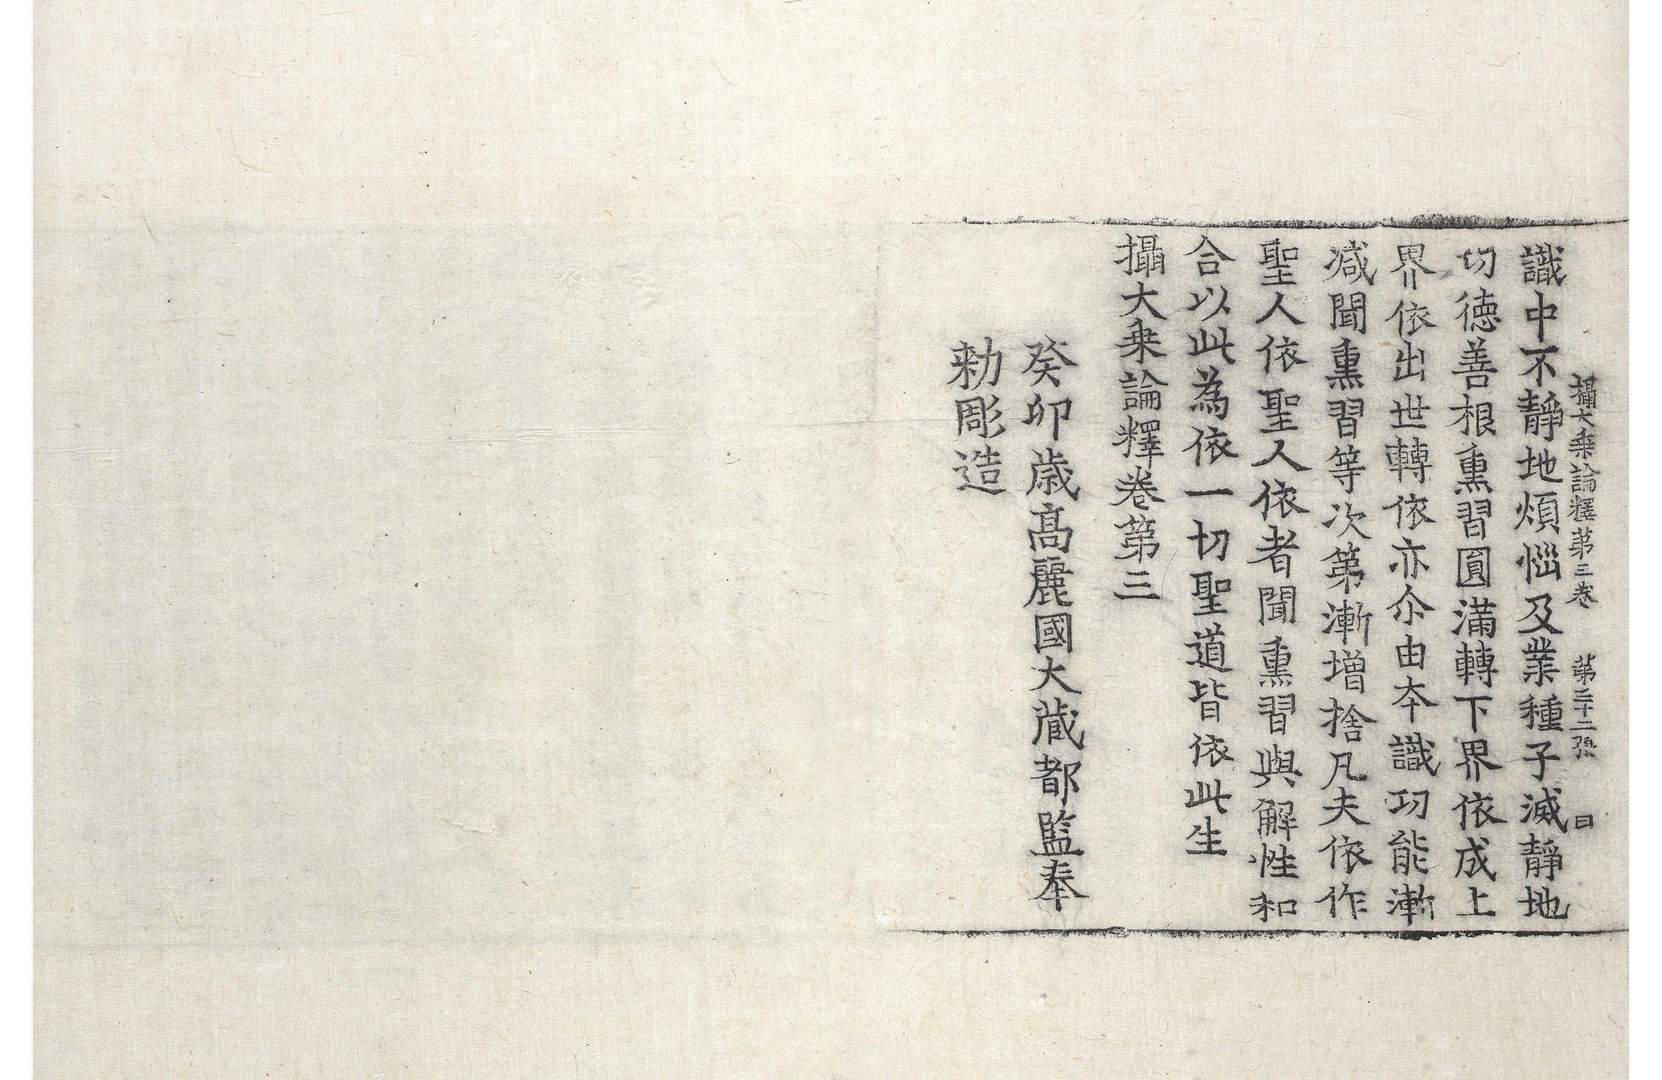 攝大乗論釋第三卷 第二十二張 日
識中不靜地煩惱及業種子滅靜地
功德善根熏習圓滿轉下界依成上
界依出世轉依亦尒由本識功能漸
減聞熏習等次第漸增捨凡夫依作
聖人依聖人依者聞熏習與解性和
合以此為依一切聖道皆依此生
攝大乗論釋卷第三
癸卯歳高麗國大藏都監奉
勅彫造